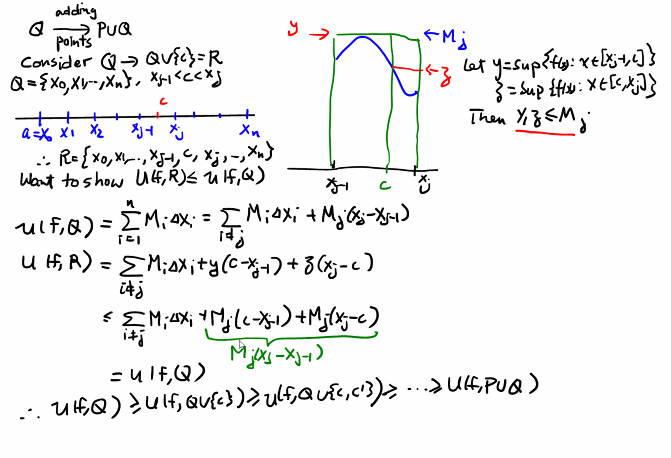 Q adding points → P∪Q
Consider Q → Q∪{c} = R
Q = {x₀, x₁, ..., xₙ}, xⱼ₋₁ < c < xⱼ
c
a=x₀ x₁ x₂ xⱼ₋₁ xⱼ xₙ
∴ R = {x₀, x₁, ..., xⱼ₋₁, c, xⱼ, .., xₙ}
Want to show U(f,R) ≤ U(f,Q)
y → ← Mⱼ
← z
xⱼ₋₁ c xⱼ
Let y = sup{f(x): x∈[xⱼ₋₁, c]}
z = sup{f(x): x∈[c, xⱼ]}
Then y, z ≤ Mⱼ
U(f,Q) = ∑ⁿᵢ₌₁ Mᵢ Δxᵢ = ∑ᵢ≠ⱼ Mᵢ Δxᵢ + Mⱼ(xⱼ - xⱼ₋₁)
U(f,R) = ∑ᵢ≠ⱼ Mᵢ Δxᵢ + y(c - xⱼ₋₁) + z(xⱼ - c)
≤ ∑ᵢ≠ⱼ Mᵢ Δxᵢ + Mⱼ(c - xⱼ₋₁) + Mⱼ(xⱼ - c)
Mⱼ(xⱼ - xⱼ₋₁)
= U(f,Q)
∴ U(f,Q) ≥ U(f, Q∪{c}) ≥ U(f, Q∪{c, c'}) ≥ ... ≥ U(f, P∪Q)